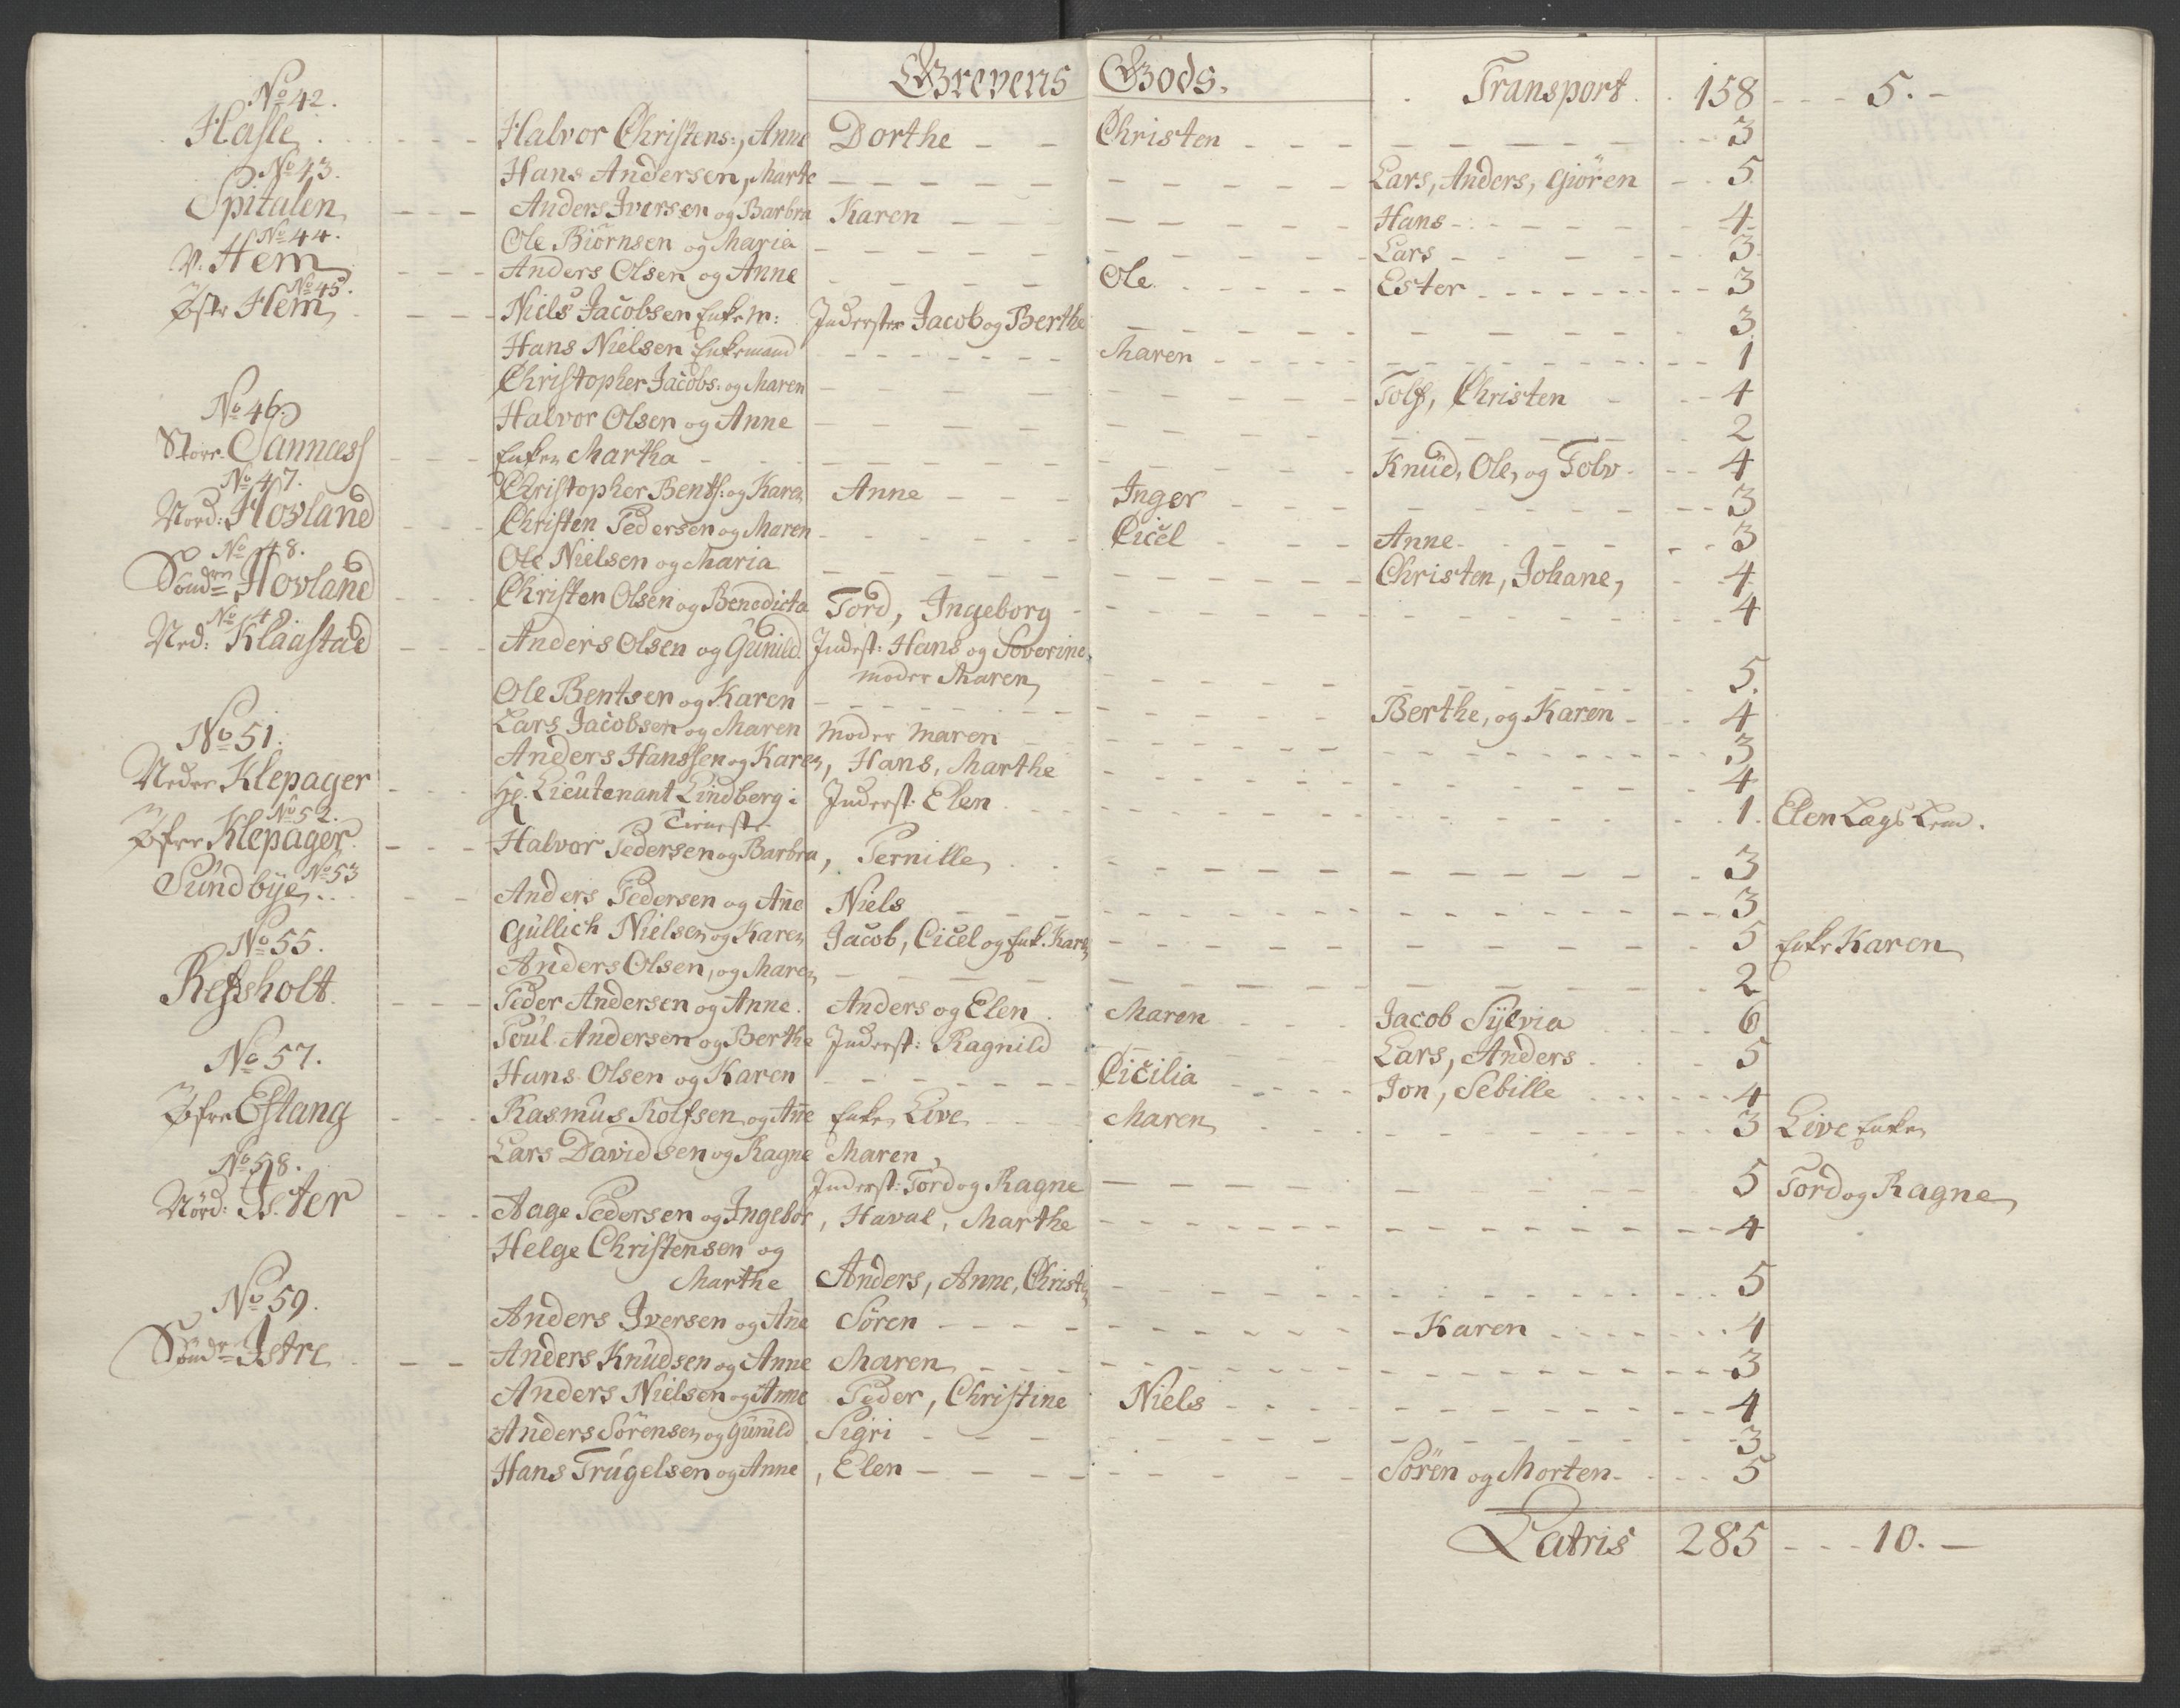 Grevens Gods. Transport 158 - - - 5. -
No 42.
Hasle Halvor Christens:, Anne Dorthe Christen 3
No 43. Hans Andersen, Marte Lars, Anders, Giören 5
Spitalen Anders Iversen og Barbra Karen Hans 4
No 44. Ole Biörnsen og Maria Lars 3
V. Hem Anders Olsen og Anne Ole Ester 3
No 45.
Östr Hem Niels Jacobsen Enke M: Inderster Jacob og Berthe 3
Hans Nielsen Enkemand Maren 1
Christopher Jacobs: og Maren Tolf, Christen 4
No 46. Halvor Olsen og Anne 2
Store Sannæss Enken Martha Knud, Ole, og Tolv 4
No 47. Christopher Bents: og Karen Anne Inger 3
Nord: Hovland Christen Pedersen og Maren Cicel Anne 3
No 48. Ole Nielsen og Maria Christen, Johane, 4
Söndre Hovland Christen Olsen og Benedicta Tord, Ingeborg 4
No 49.
Ned: Klaastad Anders Olsen og Gunild. Inderst: Hans og Soverine,
moder Maren 5.
Ole Bentsen og Karen Berthe, og Karen 4
No 51. Lars Jacobsen og Maren Moder Maren 3
Neder Klepager Anders Hanssen og Karen, Hans, Marthe 4
Hr. Lieutenant Lindberg: Inderst: Elen 1. Elen Lægs Lem.
No 52. Tieneste
Öfre Klepager. Halvor Pedersen og Barbra, Pernille 3
No 53
Sundbye Anders Pedersen og Añe Niels 3
No 55. Gullich Nielsen og Karen Jacob, Cicel og Enk. Karen 5 Enke Karen
Anders Olsen, og Maren 2
Refsholt. Peder Andersen og Anne. Anders og Elen Maren Jacob Sylvia 6
No 57. Poul Andersen og Berthe Inderst: Ragnild Lars, Anders 5
Hans Olsen og Karen Cicilia Jon, Sebille 4
Öfre Estang Rasmus Rolfsen og Añe Enke Live Maren 3 Live Enke
No 58. Lars Davidsen og Ragne Maren,
Inderst: Tord og Ragne 5 Tord og Ragne
Nörd: Ister Aage Pedersen og Ingebor, Haval, Marthe 4
Helge Christensen og
Marthe Anders, Anne, Christin 5
No 59. Anders Iversen og Añe Sören Karen 4
Söndre Istre Anders Knudsen og Anne Maren 3
Anders Nielsen og Anne Peder, Christine Niels 4
Anders Sörensen og Gunild Sigri 3
Hans Trugelsen og Anne, Elen Sören og Morten 5
Latris 285 - - - 10. -